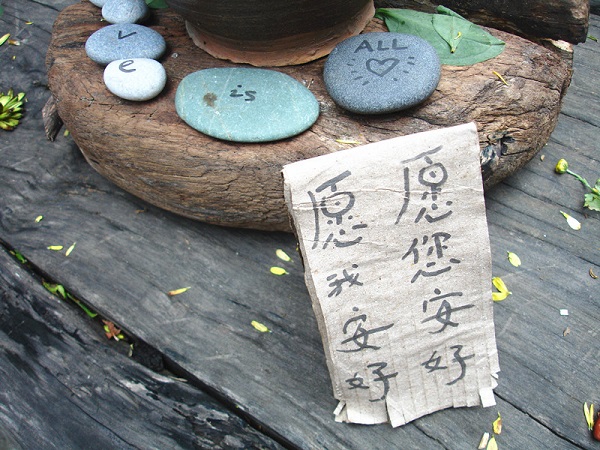 v
e
is
ALL
愿您安好
愿我安好